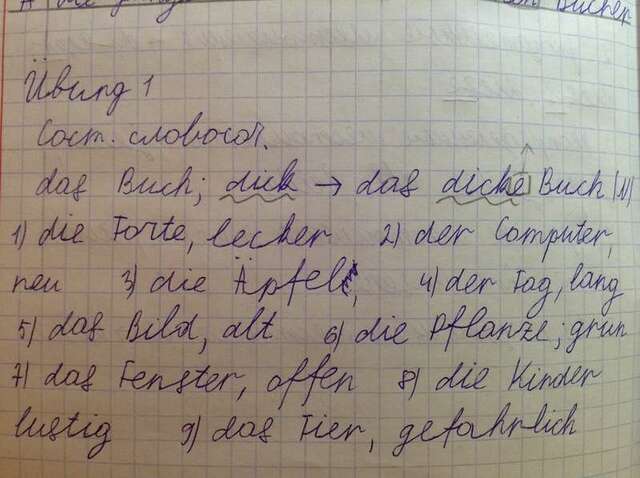 Bücher
Übung 1
Сост. словосоч.
das Buch; dick → das dicke Buch (N)
1) die Torte, lecker 2) der Computer,
neu 3) die Äpfel, 4) der Tag, lang
5) das Bild, alt 6) die Pflanze; grün
7) das Fenster, offen 8) die Kinder
lustig 9) das Tier, gefahrlich